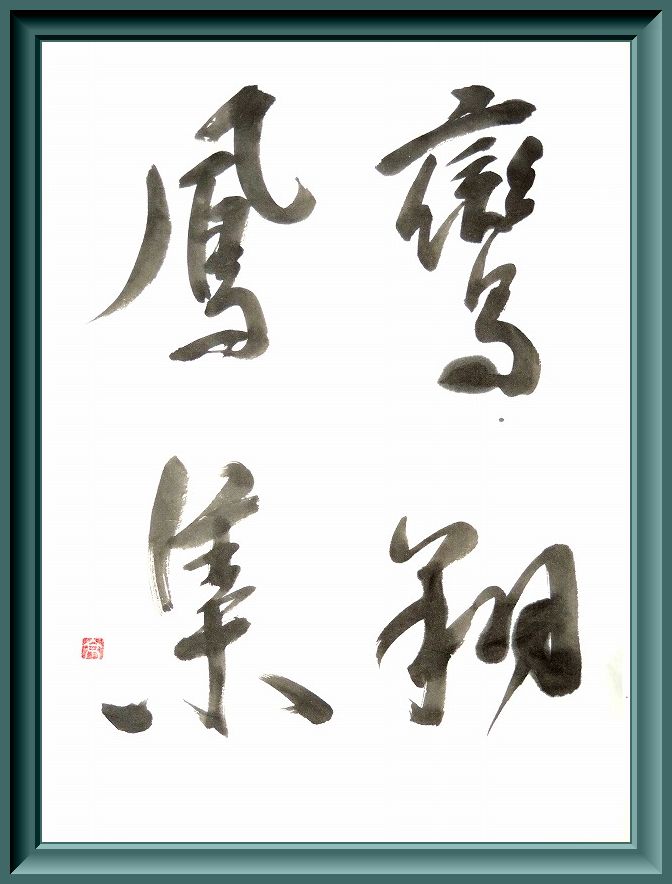 鸞翔
鳳集